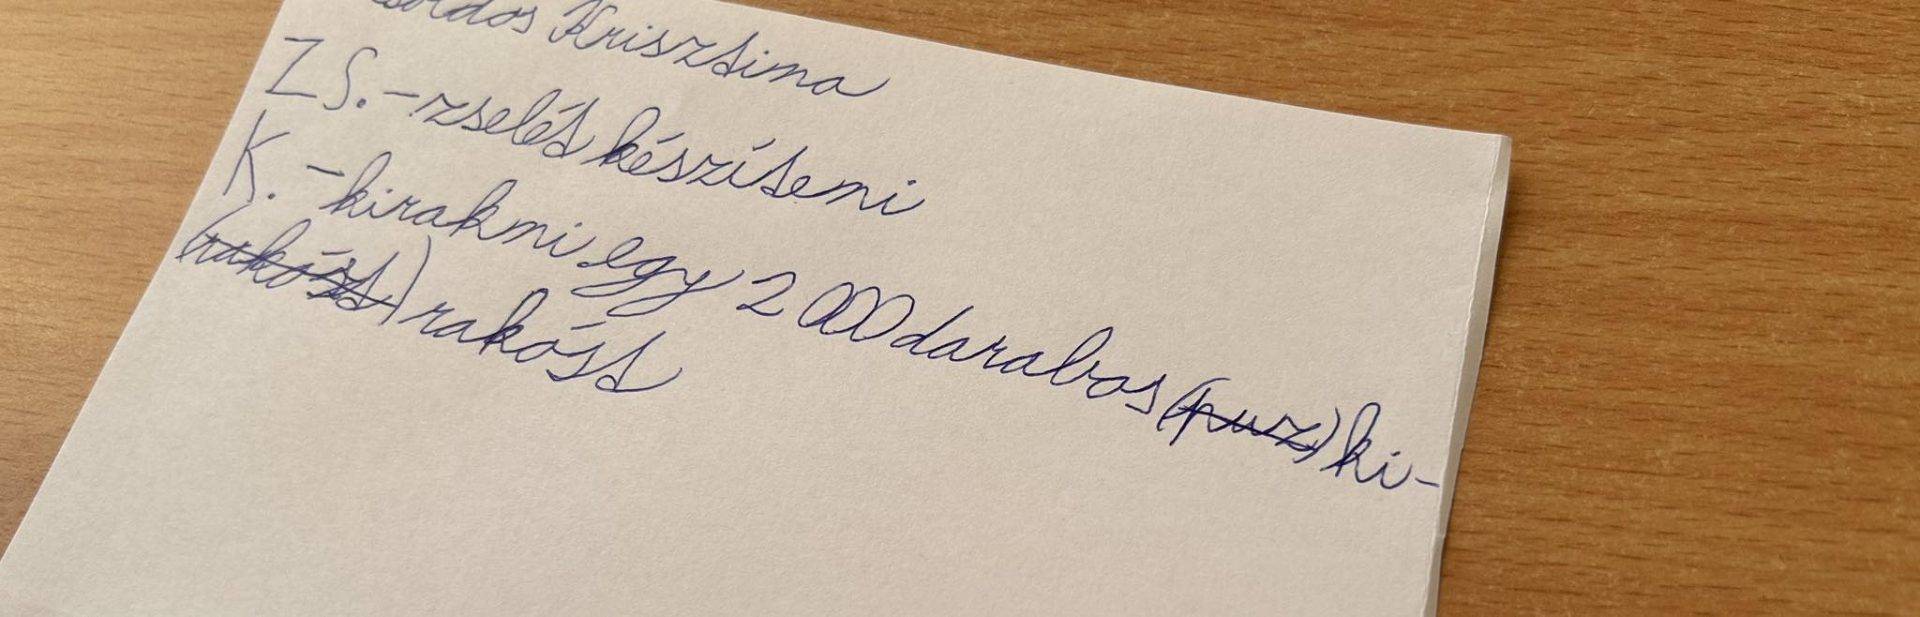 Krisztina
ZS. - zselét készíteni
K. - kirakni egy 2000 darabos (puz) ki-
(rakózt) rakóst